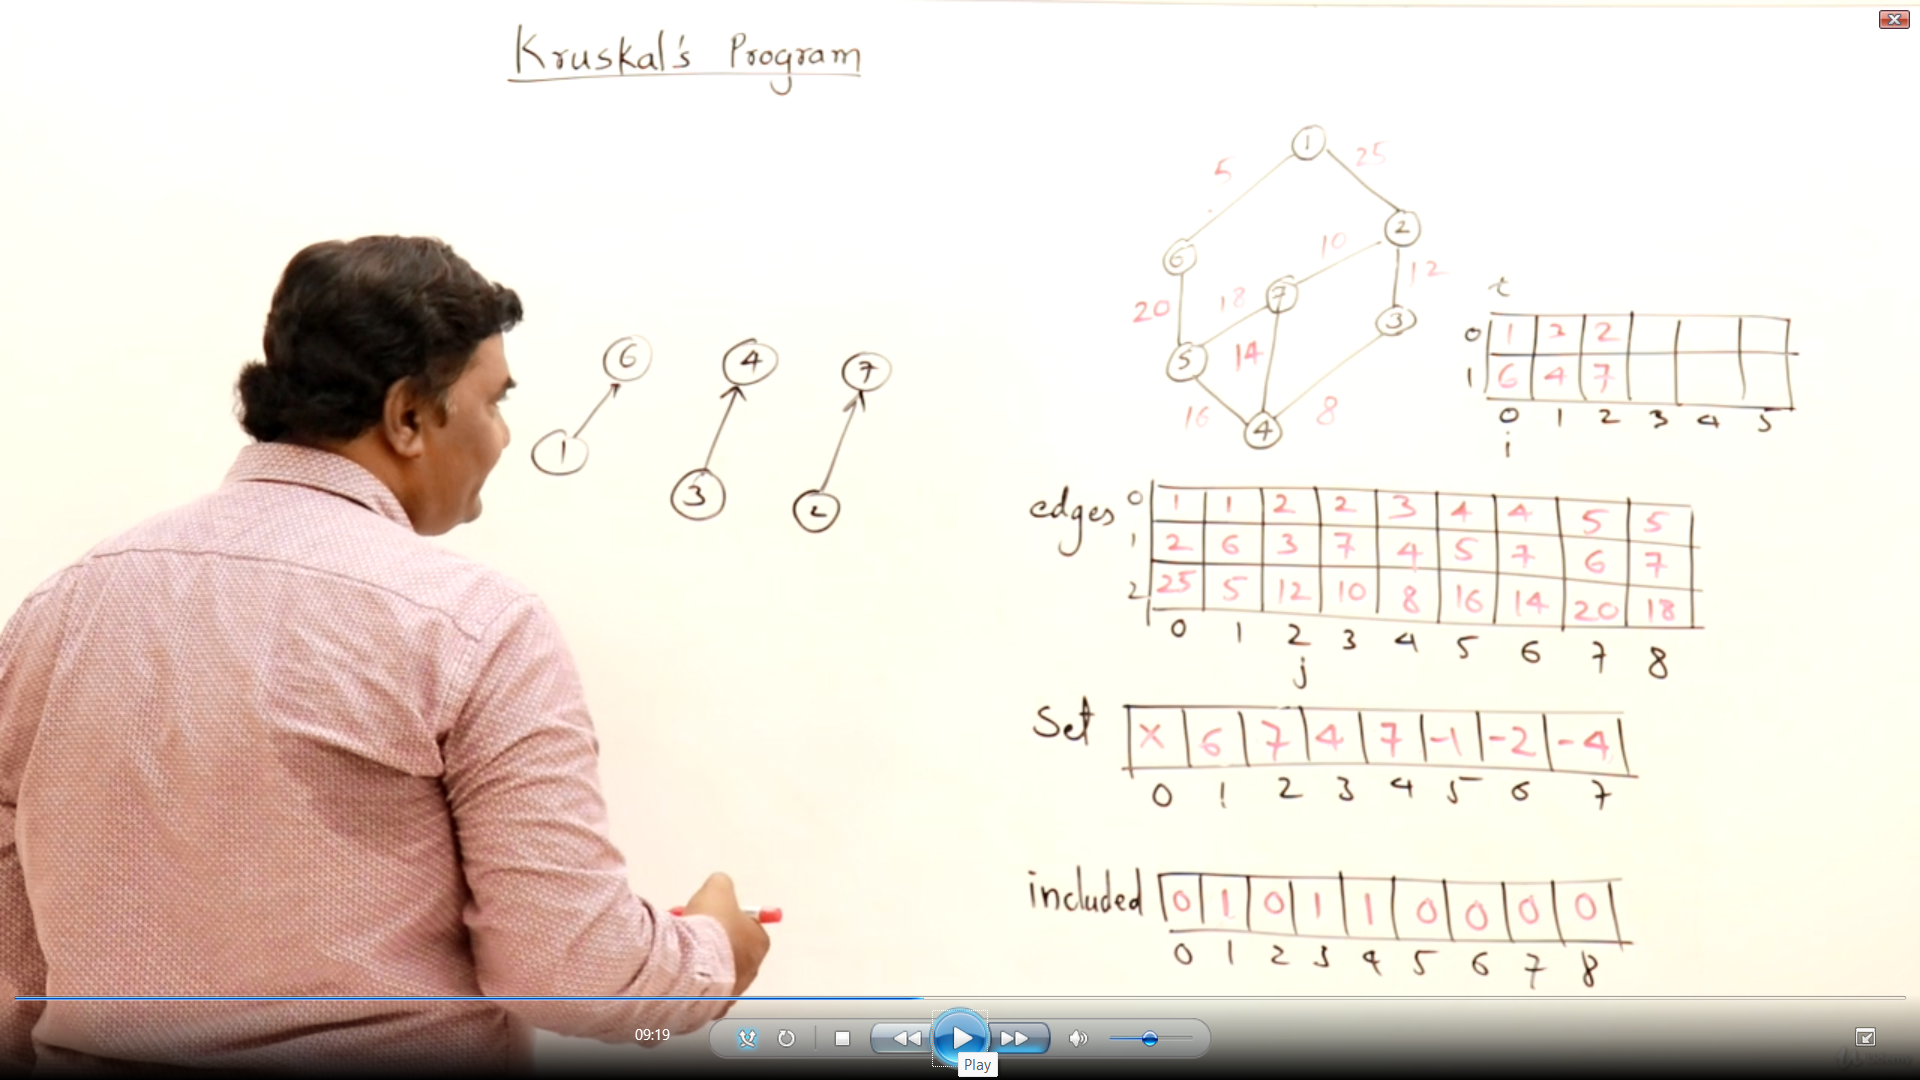 Kruskal's Program
1
5
25
2
6
10
12
7
20
18
3
5
14
16
8
4
6
4
7
1
3
2
t
0 1 3 2
1 6 4 7
0 1 2 3 4 5
i
edges
0 1 1 2 2 3 4 4 5 5
1 2 6 3 7 4 5 7 6 7
2 25 5 12 10 8 16 14 20 18
0 1 2 3 4 5 6 7 8
j
Set X 6 7 4 7 -1 -2 -4
0 1 2 3 4 5 6 7
included 0 1 0 1 1 0 0 0 0
0 1 2 3 4 5 6 7 8
09:19
Play